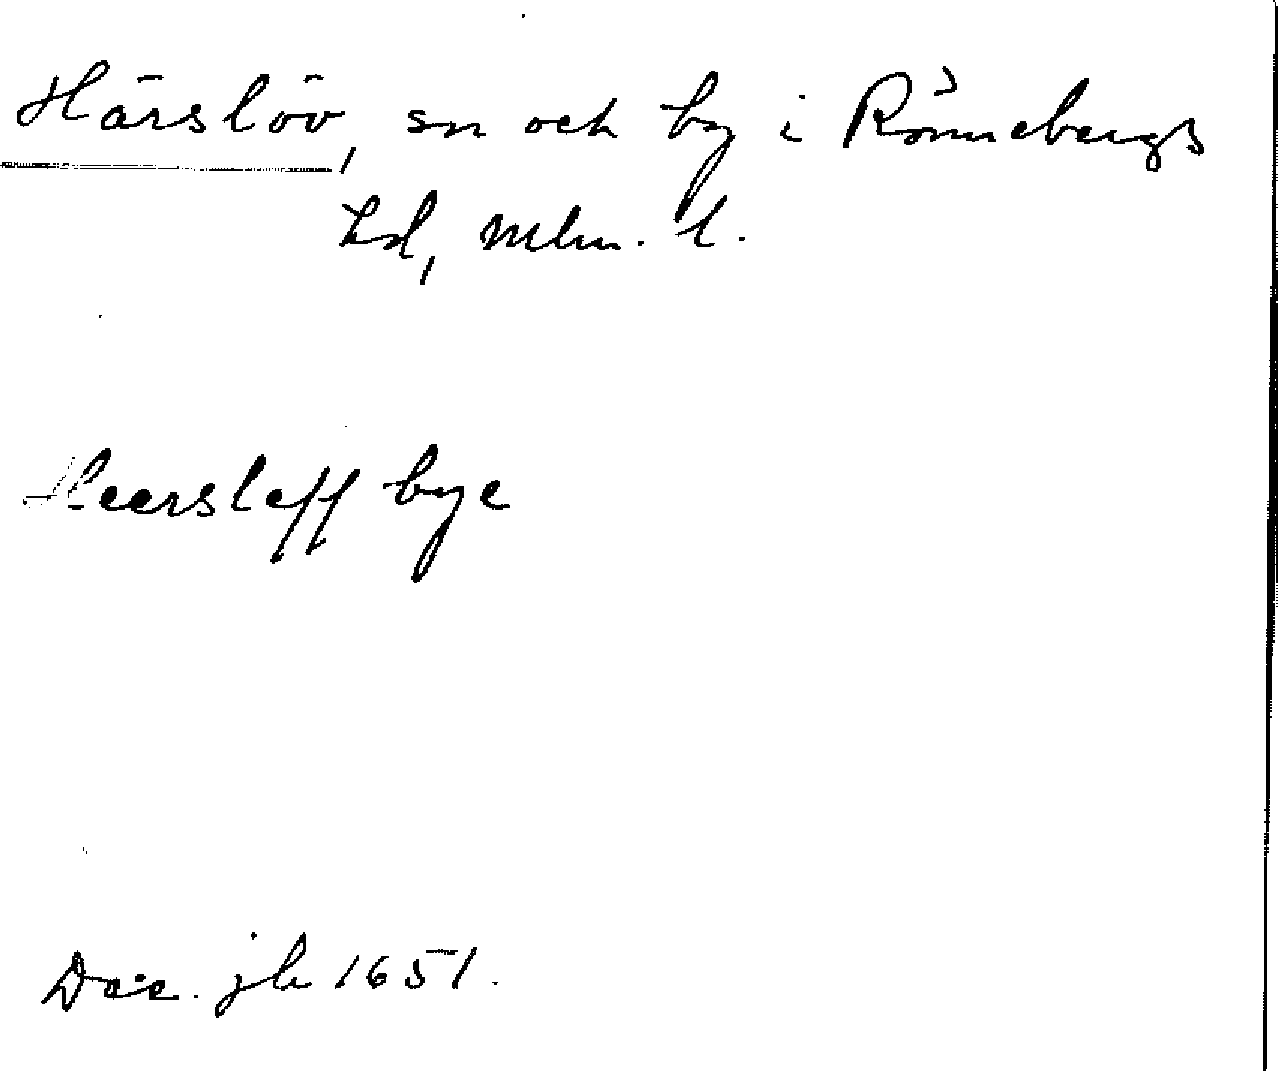 Härslöv, sn och by i Rönnebergs
hd, Mlm. l.
Heersleff bye
Dec. jb 1651.